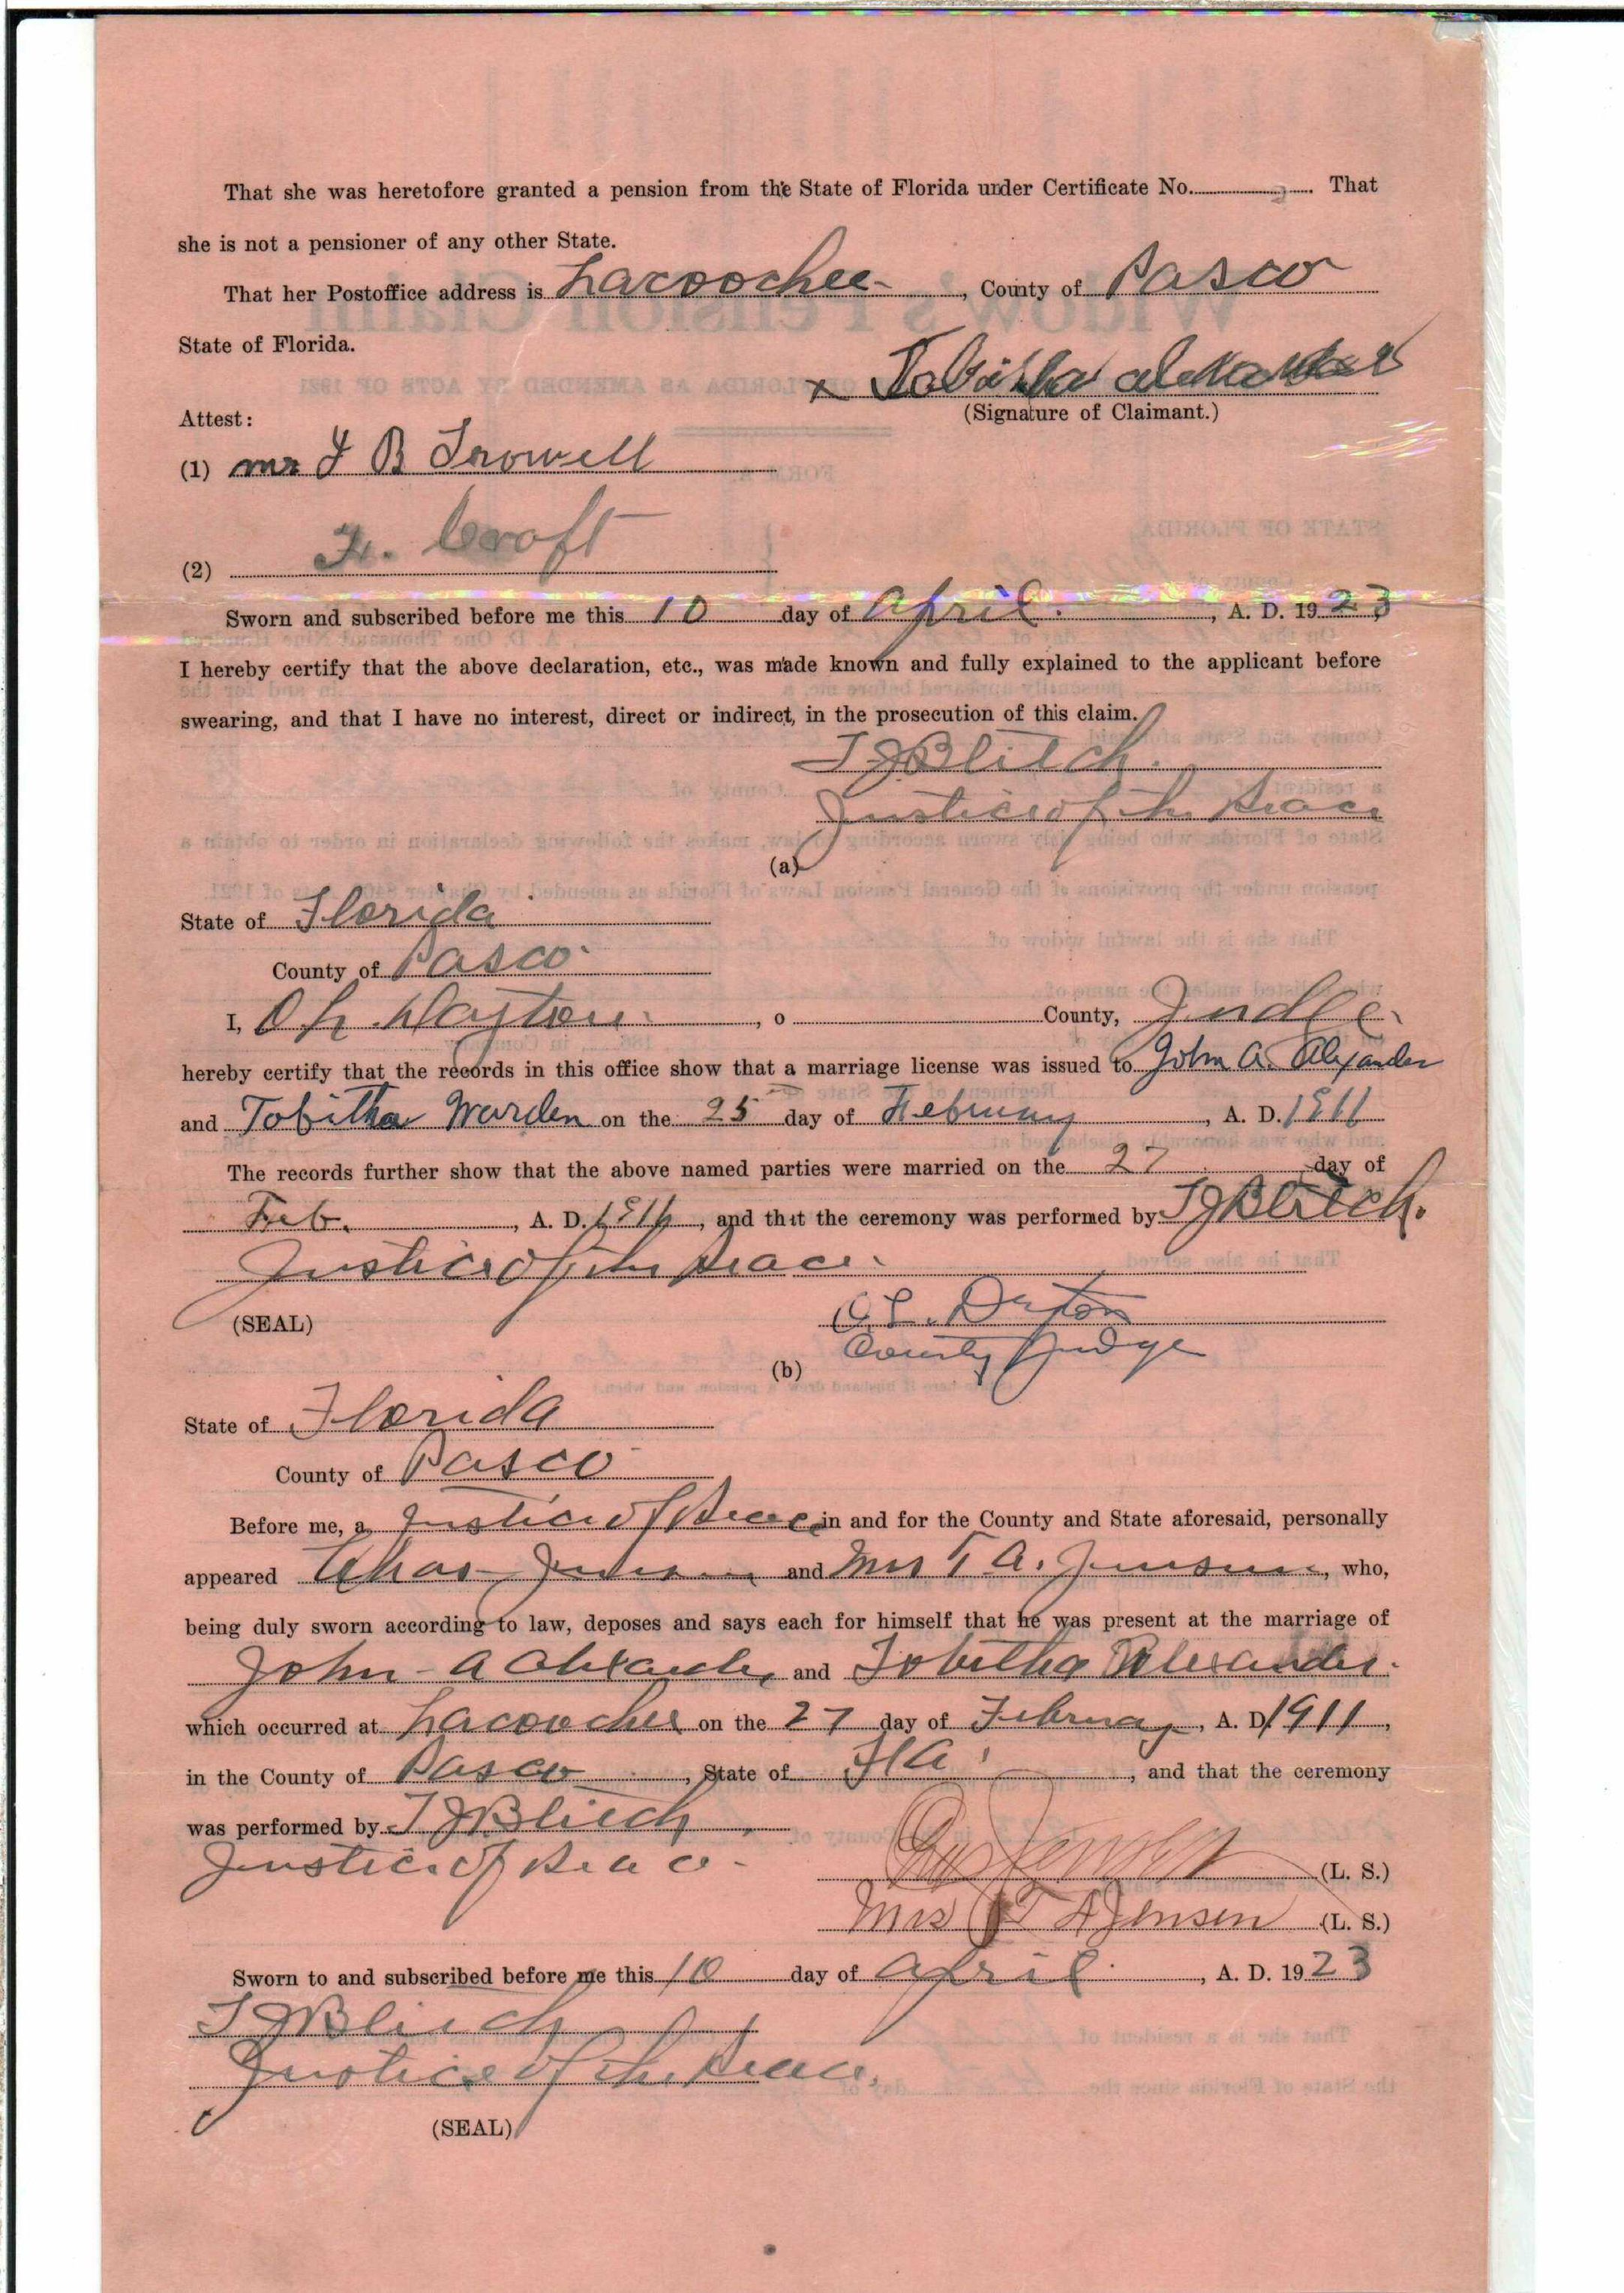 That she was heretofore granted a pension from the State of Florida under Certificate No. That
she is not a pensioner of any other State.
That her Postoffice address is Lacoochee, County of Pasco
State of Florida.
x Tabitha Alexander
(Signature of Claimant.)
Attest:
(1) mr J B Trowell
(2) Croft
Sworn and subscribed before me this 10 day of April, A. D. 1923,
I hereby certify that the above declaration, etc., was made known and fully explained to the applicant before
swearing, and that I have no interest, direct or indirect, in the prosecution of this claim.
T J Blitch.
Justice of the Peace
(a)
State of Florida
County of Pasco
I, O L Dayton, o County, Judge
hereby certify that the records in this office show that a marriage license was issued to John A. Alexander
and Tobitha Warden on the 25 day of February, A. D. 1911
The records further show that the above named parties were married on the 27 day of
Feb., A. D. 1911, and that the ceremony was performed by T J Blitch.
Justice of the Peace.
(SEAL)
O. L. Dayton
County Judge
(b)
State of Florida
County of Pasco
Before me, a Justice of Peace in and for the County and State aforesaid, personally
appeared Chas Jensen and Mrs T A. Jensen, who,
being duly sworn according to law, deposes and says each for himself that he was present at the marriage of
John A Alexander and Tobitha Alexander.
which occurred at Lacoochee on the 27 day of February, A. D 1911,
in the County of Pasco, State of Fla, and that the ceremony
was performed by T J Blitch
Justice of Peace
Jensen (L. S.)
Mrs T A Jensen (L. S.)
Sworn to and subscribed before me this 10 day of April, A. D. 1923
T J Blitch
Justice of the Peace.
(SEAL)